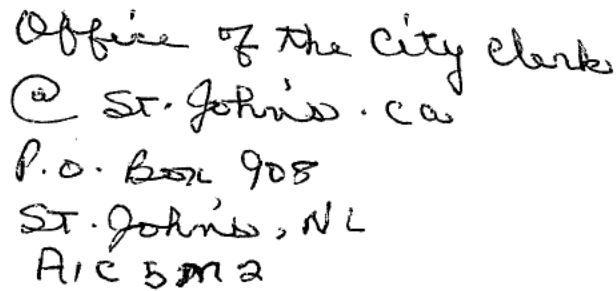 Office of the City Clerk
@ St. John's. ca
P.O. Box 908
St. John's, NL
A1C 5M2